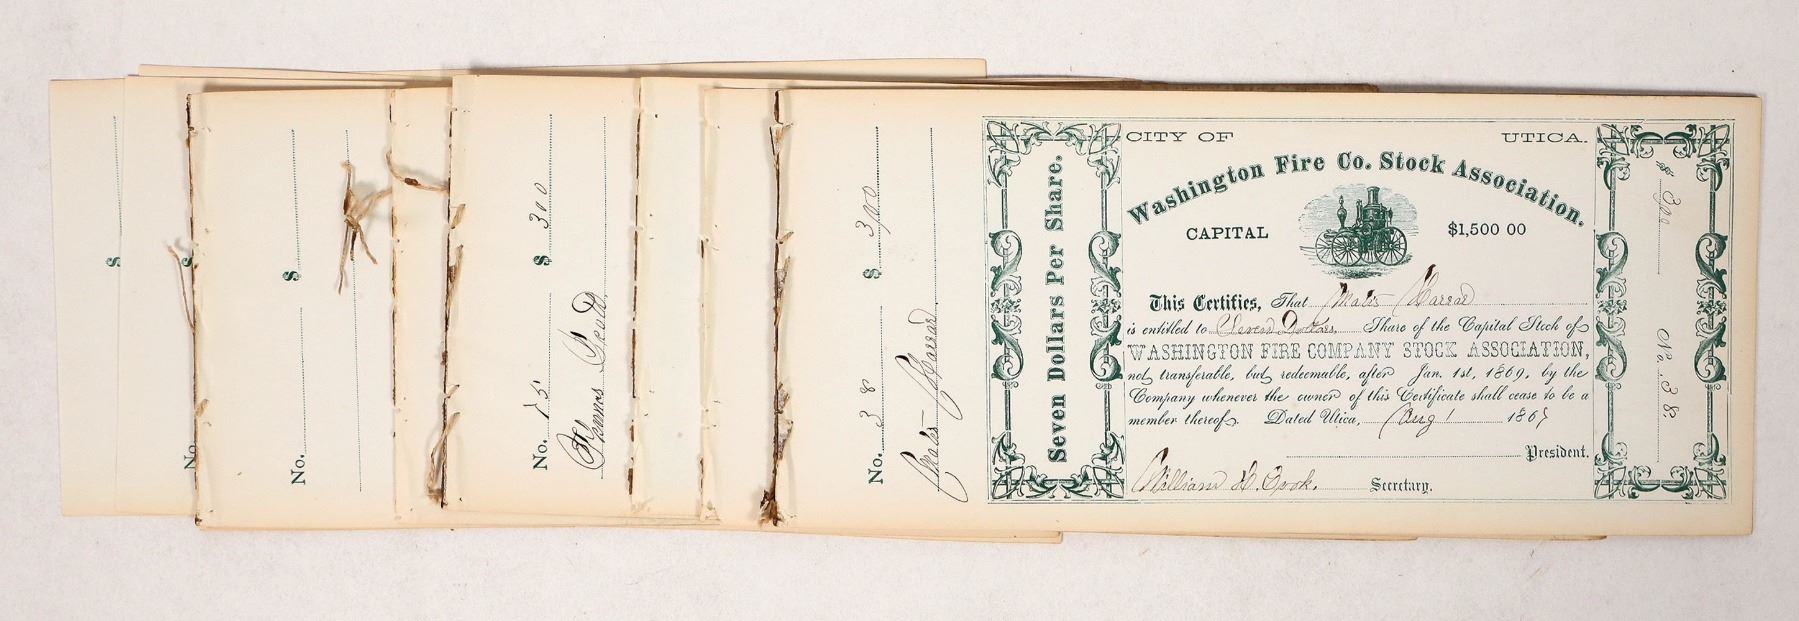 $
$
No.
$
No.
$ 300
No. 15
$ 300
No. 38
Seven Dollars Per Share.
CITY OF UTICA.
Washington Fire Co. Stock Association.
CAPITAL $1,500 00
This Certifies, That
is entitled to Seven Dollars, Share of the Capital Stock of
WASHINGTON FIRE COMPANY STOCK ASSOCIATION,
not transferable, but redeemable, after Jan. 1st, 1869, by the
Company whenever the owner of this Certificate shall cease to be a
member thereof. Dated Utica, Aug 1 186
President.
William Secretary.
$
No. 38